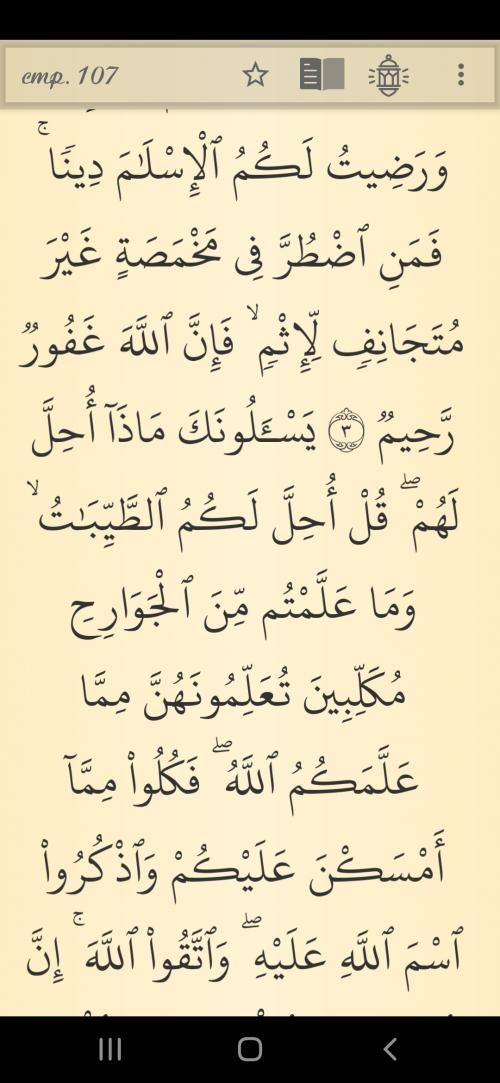 стр. 107
وَرَضِيتُ لَكُمُ ٱلْإِسْلَـٰمَ دِينًا ۚ
فَمَنِ ٱضْطُرَّ فِى مَخْمَصَةٍ غَيْرَ
مُتَجَانِفٍ لِّإِثْمٍ ۙ فَإِنَّ ٱللَّهَ غَفُورٌ
رَّحِيمٌ ٣ يَسْـَٔلُونَكَ مَاذَآ أُحِلَّ
لَهُمْ ۖ قُلْ أُحِلَّ لَكُمُ ٱلطَّيِّبَـٰتُ ۙ
وَمَا عَلَّمْتُم مِّنَ ٱلْجَوَارِحِ
مُكَلِّبِينَ تُعَلِّمُونَهُنَّ مِمَّا
عَلَّمَكُمُ ٱللَّهُ ۖ فَكُلُوا۟ مِمَّآ
أَمْسَكْنَ عَلَيْكُمْ وَٱذْكُرُوا۟
ٱسْمَ ٱللَّهِ عَلَيْهِ ۖ وَٱتَّقُوا۟ ٱللَّهَ ۚ إِنَّ